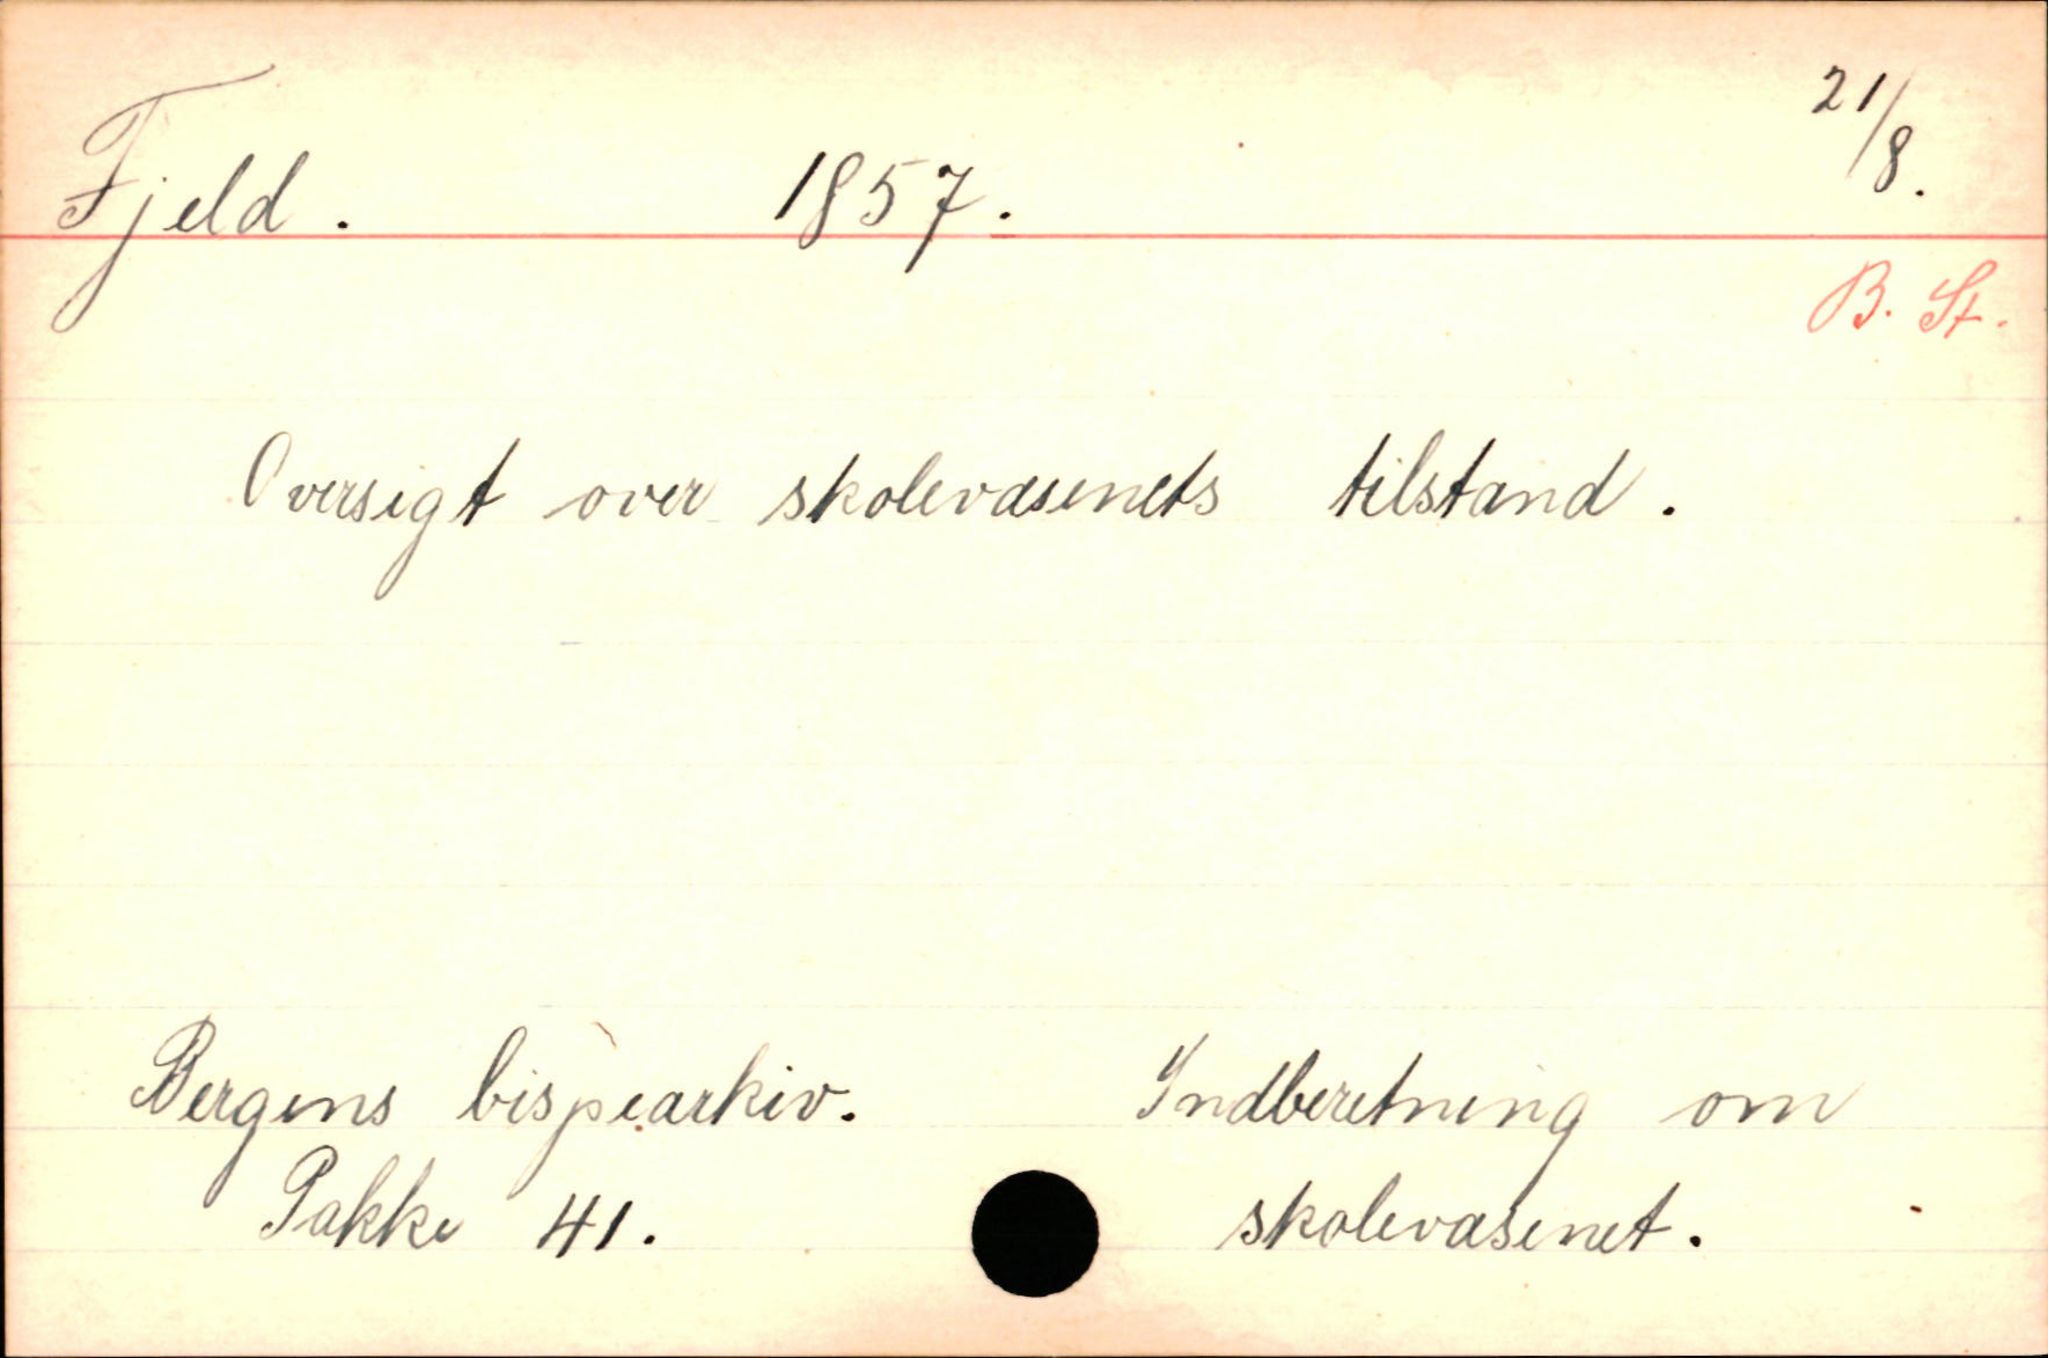 Fjeld. 1857. 21/8.
B. St.
Oversigt over skolevæsenets tilstand.
Bergens bispearkiv. Indberetning om
Pakke 41. skolevæsenet.